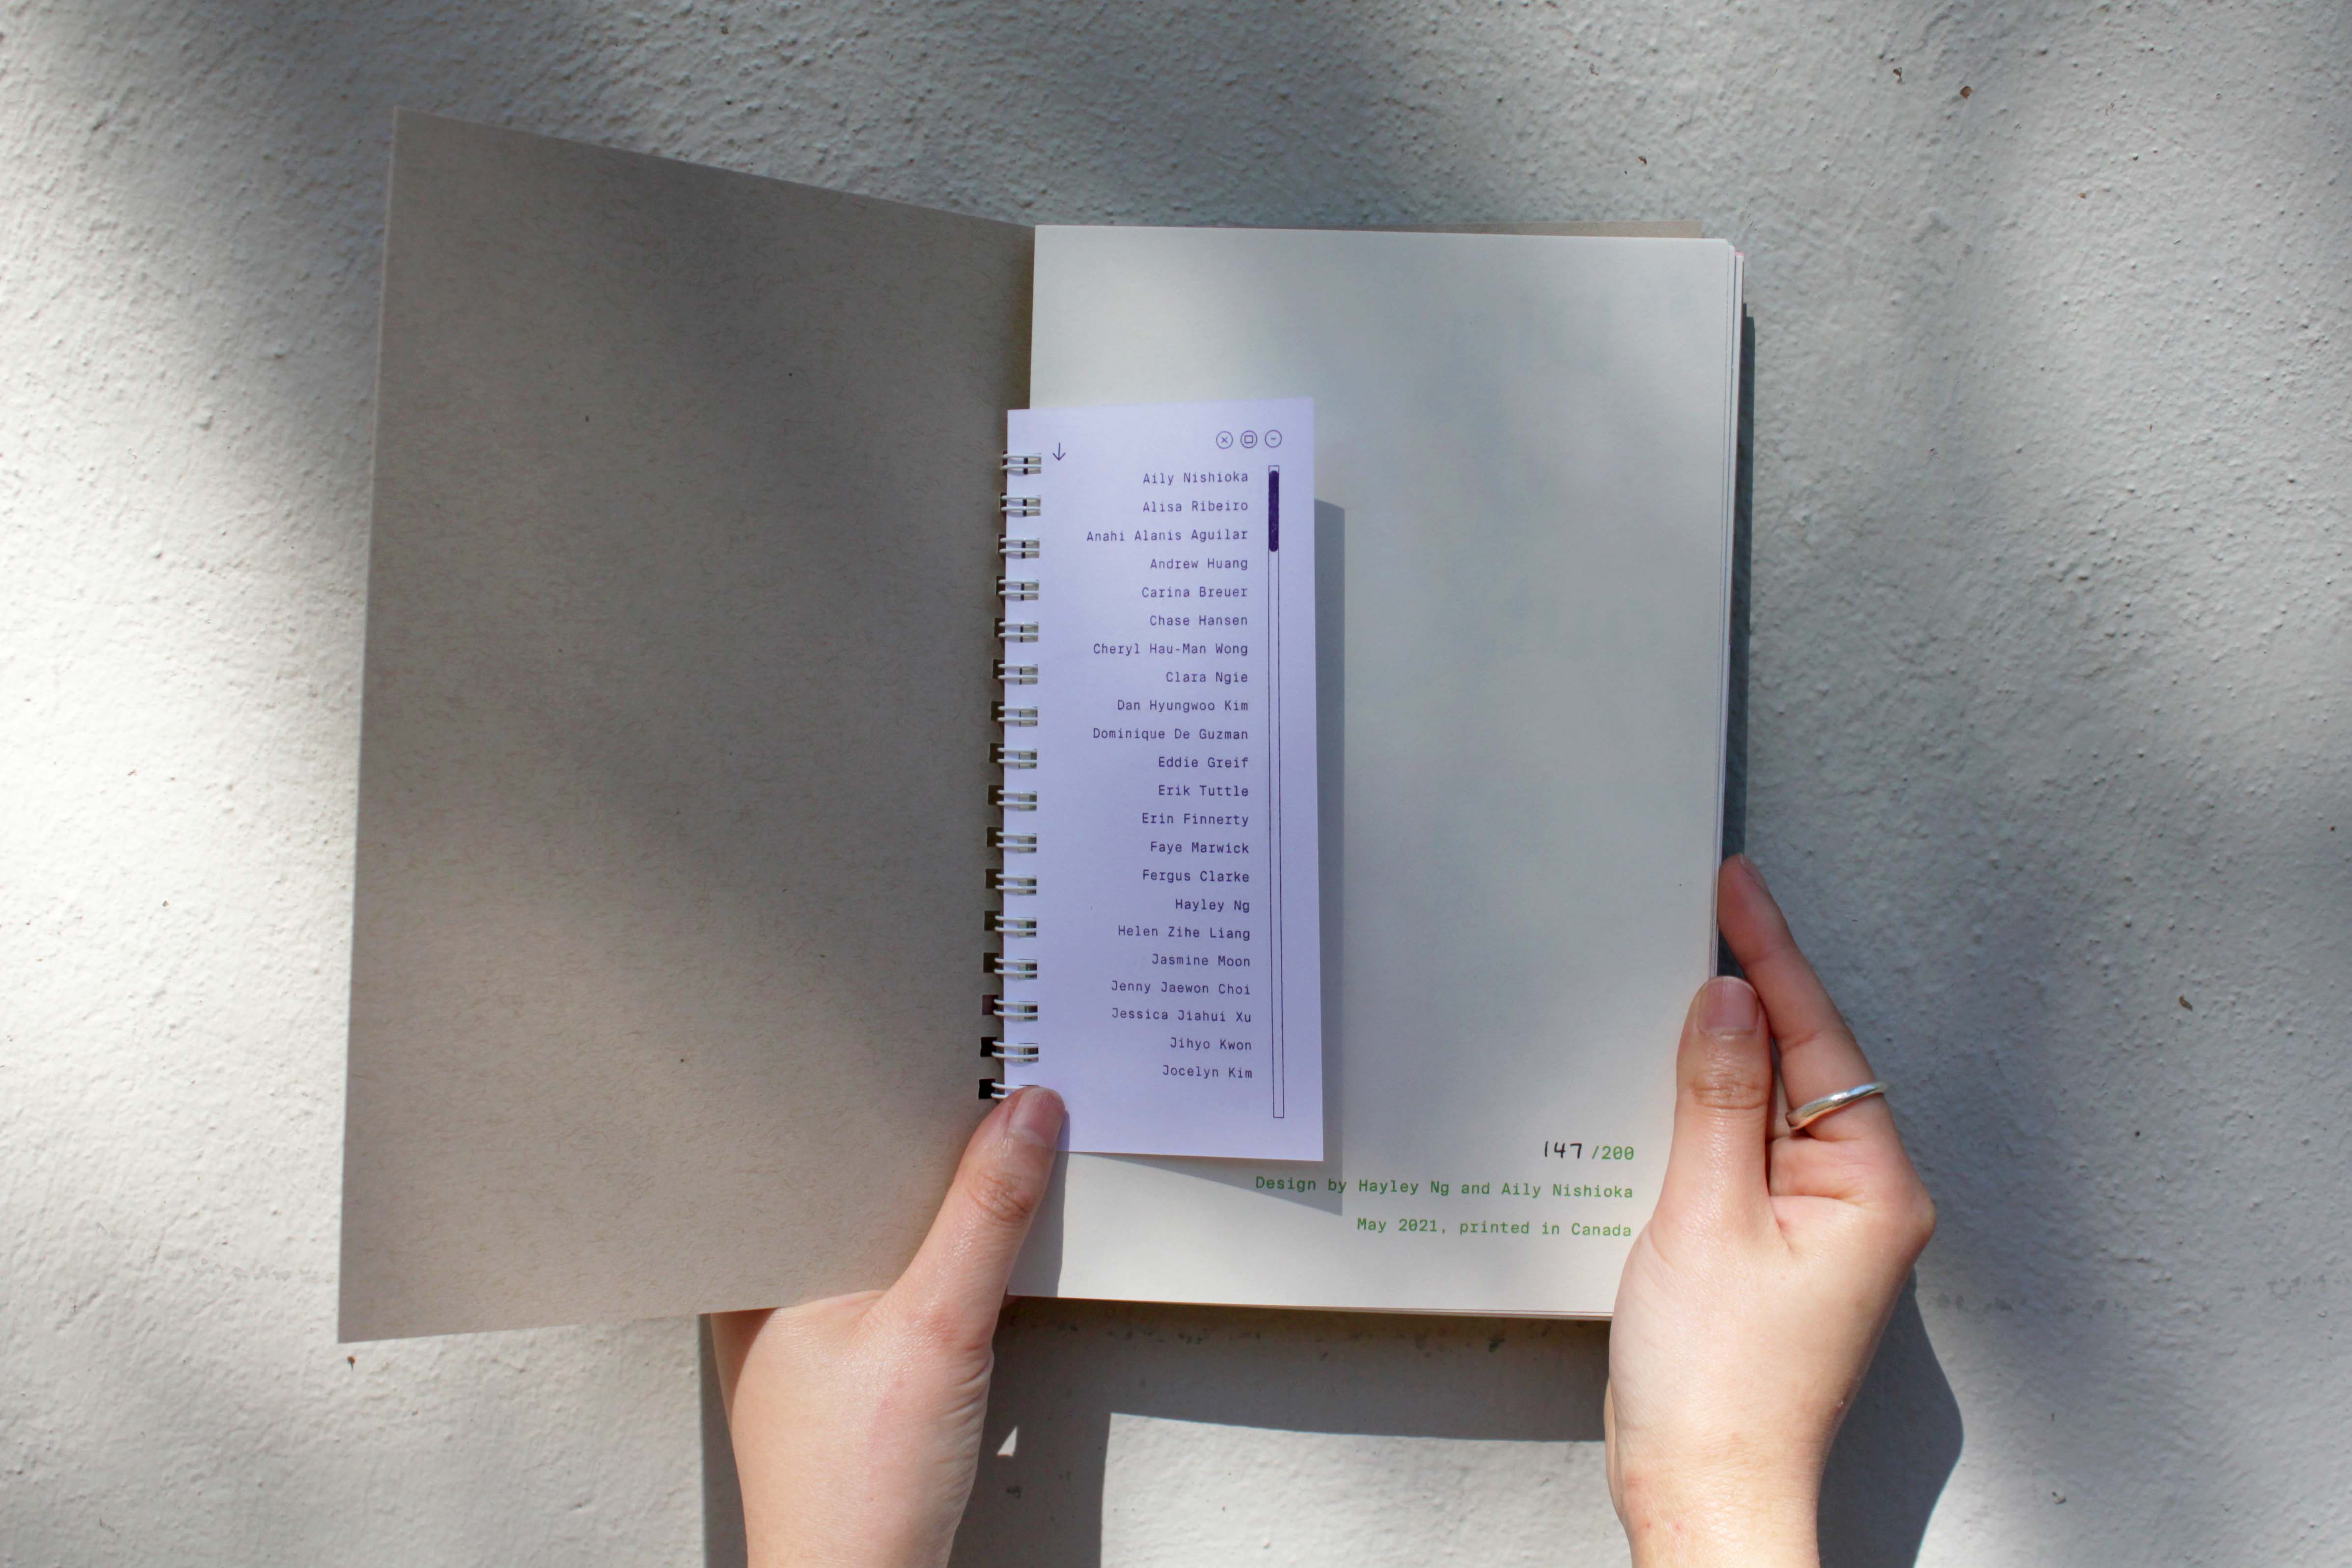 Aily Nishioka
Alisa Ribeiro
Anahi Alanis Aguilar
Andrew Huang
Carina Breuer
Chase Hansen
Cheryl Hau-Man Wong
Clara Ngie
Dan Hyungwoo Kim
Dominique De Guzman
Eddie Greif
Erik Tuttle
Erin Finnerty
Faye Marwick
Fergus Clarke
Hayley Ng
Helen Zihe Liang
Jasmine Moon
Jenny Jaewon Choi
Jessica Jiahui Xu
Jihyo Kwon
Jocelyn Kim
147 /200
Design by Hayley Ng and Aily Nishioka
May 2021, printed in Canada